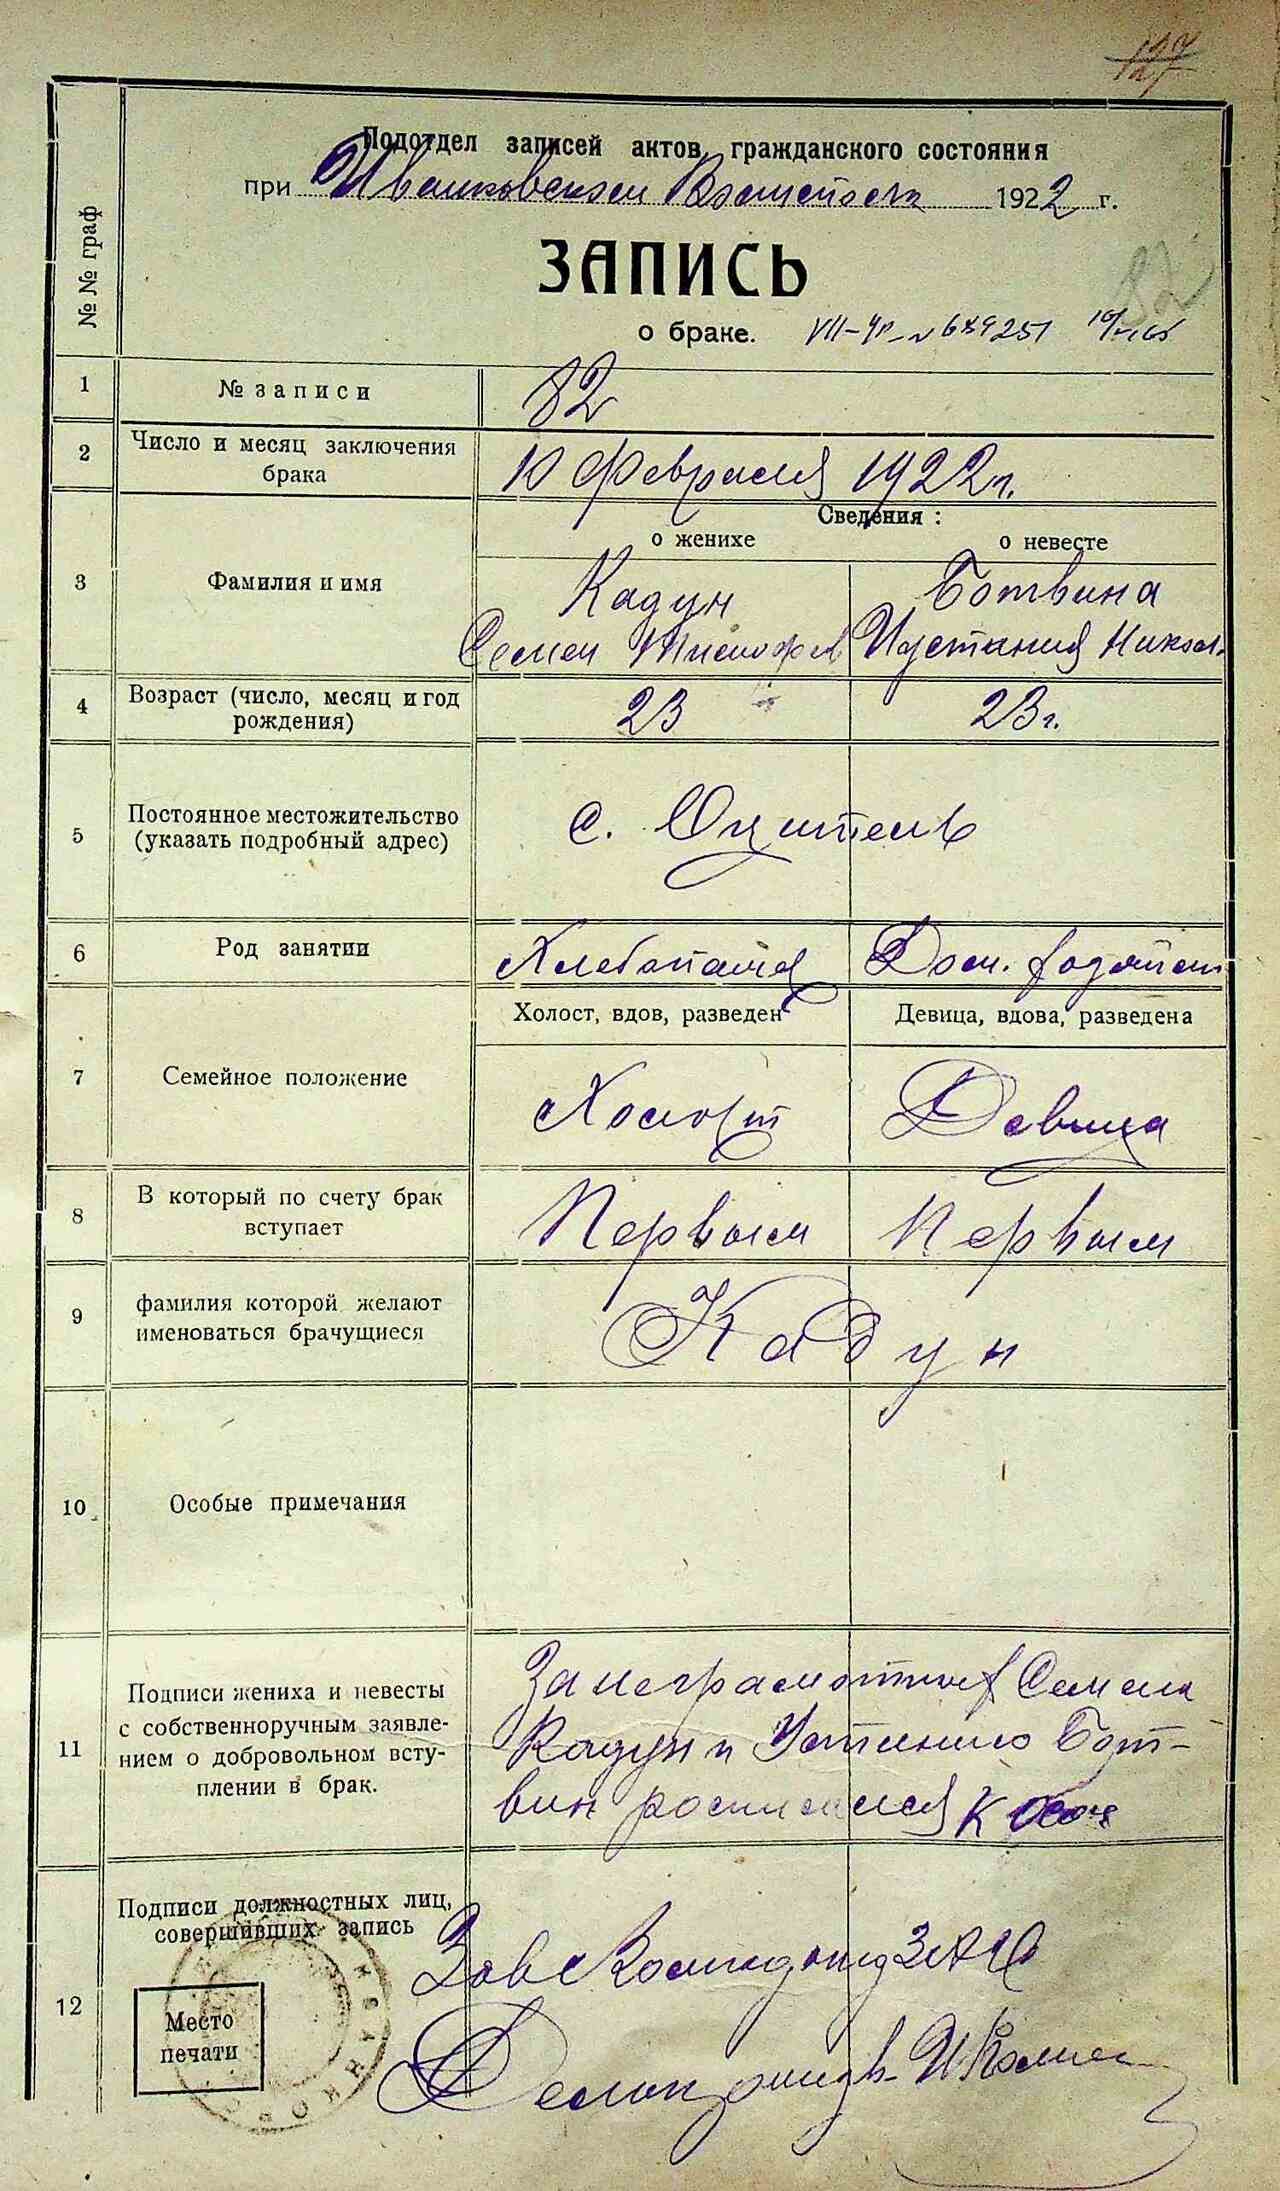 127
Подотдел записей актов гражданского состояния
при Иванковском 1922 г.
ЗАПИСЬ
82
о браке. VII-ЧП-№ 649251
№№ граф
1 № записи 82
2 Число и месяц заключения брака 10 февраля 1922 г.
Сведения:
о женихе о невесте
3 Фамилия и имя Кадун Ботвина
Семен Тимофеев Иустиния Никол.
4 Возраст (число, месяц и год рождения) 23 23 г.
5 Постоянное местожительство (указать подробный адрес) с.
6 Род занятии Хлебопаш Дом. работ
Холост, вдов, разведен Девица, вдова, разведена
7 Семейное положение Холост Девица
8 В который по счету брак вступает Первым Первым
9 фамилия которой желают именоваться брачущиеся Кадун
10 Особые примечания
11 Подписи жениха и невесты
с собственноручным заявле-
нием о добровольном всту-
плении в брак.
За неграмотных Семена
Кадун и Устинию Бот-
вин росписался
12 Подписи должностных лиц,
совершивших запись
Зав. ЗАГС
Место
печати
Делопроизв.